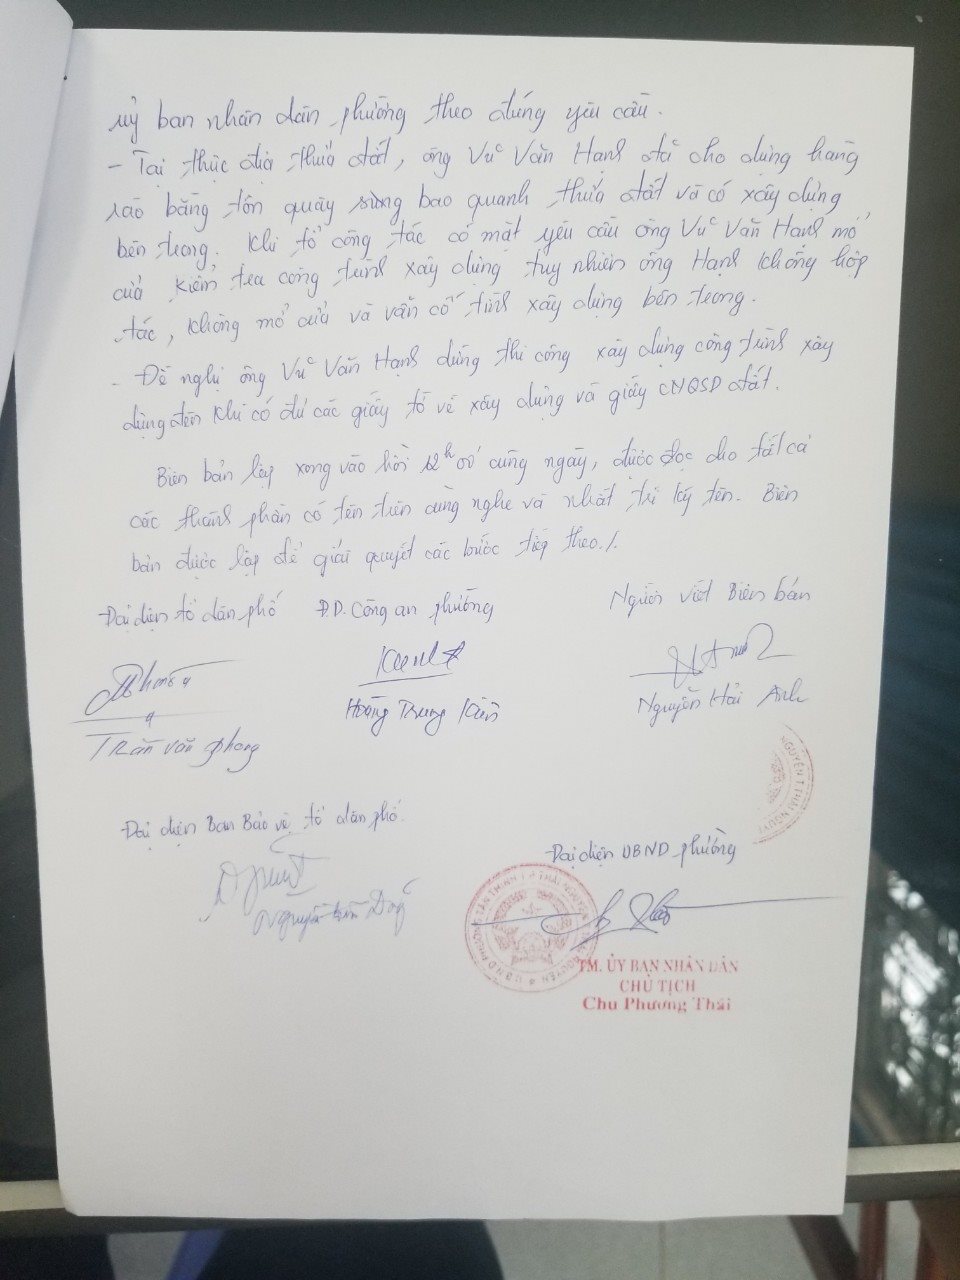 uỷ ban nhân dân phường theo đúng yêu cầu.
- Tại thực địa thửa đất, ông Vũ Văn Hạnh đã cho dựng hàng
rào bằng tôn quây xung bao quanh thửa đất và có xây dựng
bên trong. Khi tổ công tác có mặt yêu cầu ông Vũ Văn Hạnh mở
cửa kiểm tra công trình xây dựng tuy nhiên ông Hạnh không hợp
tác, không mở cửa và vẫn cố tình xây dựng bên trong.
- Đề nghị ông Vũ Văn Hạnh dừng thi công xây dựng công trình xây
dựng đến khi có đủ các giấy tờ về xây dựng và giấy CNQSD đất.
Biên bản lập xong vào hồi 12h00' cùng ngày, được đọc cho tất cả
các thành phần có tên trên cùng nghe và nhất trí ký tên. Biên
bản được lập để giải quyết các bước tiếp theo./.
Đại diện tổ dân phố Đ.D. Công an phường Người viết Biên bản
Hoàng Trung Kiên Nguyễn Hải Anh
Trần Văn Phong
Đại diện Ban Bảo vệ tổ dân phố.
Đại diện UBND phường
Nguyễn
TM. ỦY BAN NHÂN DÂN
CHỦ TỊCH
Chu Phương Thái